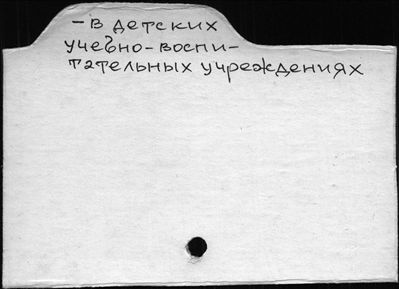 - в детских
учебно-воспи-
тательных учреждениях